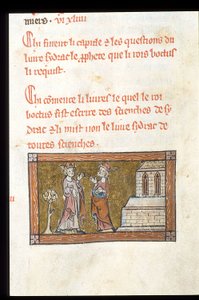 mers . vi xliiii
Chi finent li capitle et les questions du
livre sydrac le prophete que li rois boctus
li requist.
Chi comence li livres le quel le roi
boctus fist escrire des sciences de sy
drac et li mist non le livre sydrac de
toutes sciences.